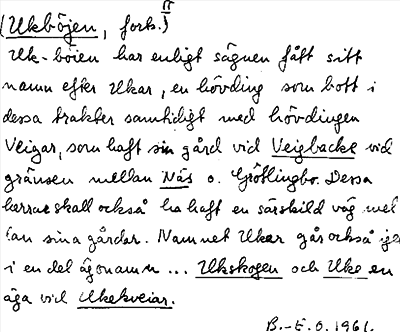 (Ukböjen, forts.) II
Uk-böien har enligt sägnen fått sitt
namn efter Ukar, en hövding som bott i
dessa trakter samtidigt med hövdingen
Veigar, som haft sin gård vid Veigbacke vid
gränsen mellan Näs o. Grötlingbo. Dessa
herrar skall också ha haft en särskild väg mel
lan sina gårdar. Namnet Ukar går också igen
i en del ägonamn ... Ukskogen och Uke en
äga vid Ukekveiar.
B.-E. O. 1961.